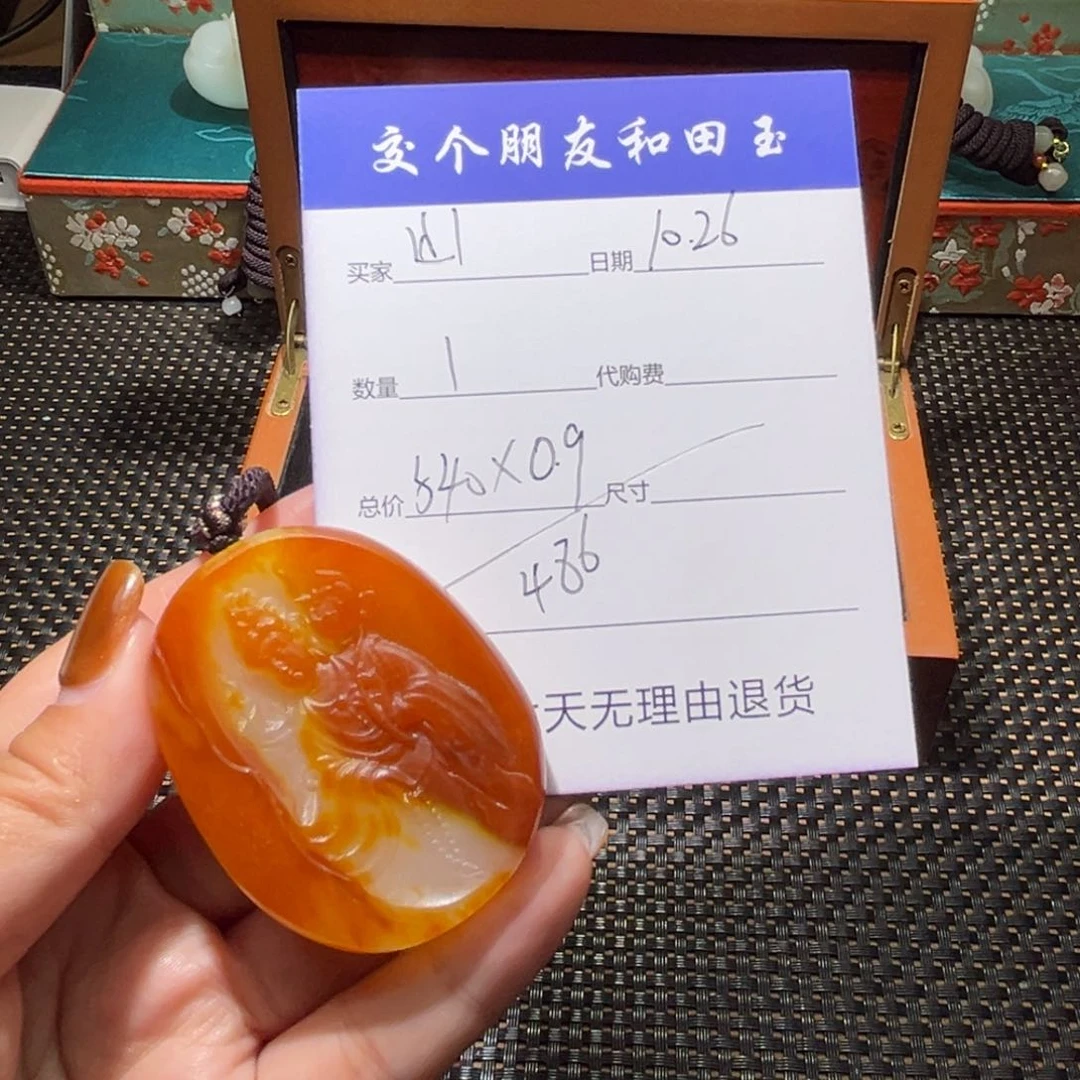 交个朋友和田玉
买家 日期 10.26
数量 1 代购费
总价 540×0.9 尺寸
486
天无理由退货